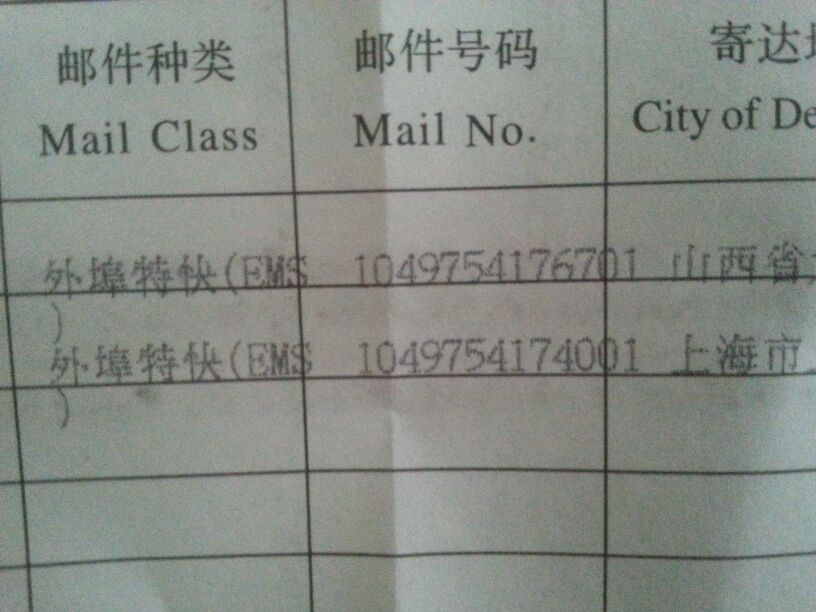 邮件种类 邮件号码 寄达
Mail Class Mail No. City of De
外埠特快(EMS 1049754176701 山西省
)
外埠特快(EMS 1049754174001 上海市
)